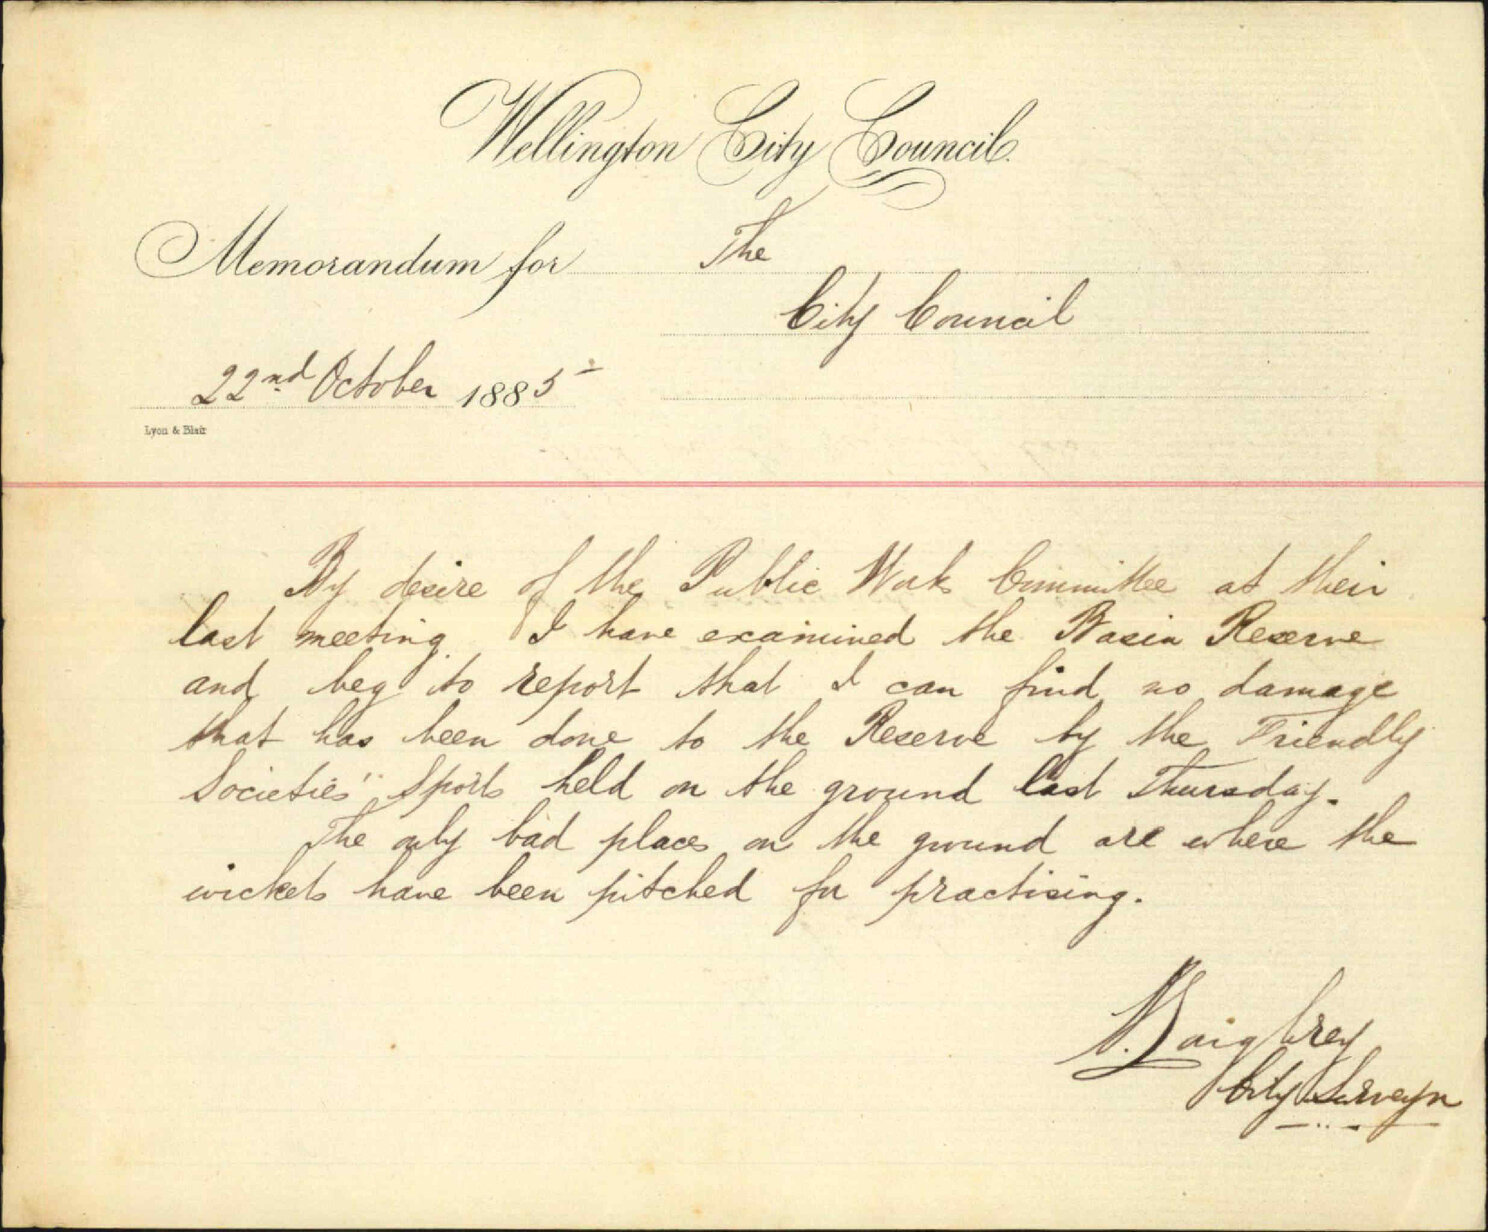 Wellington City Council.
Memorandum for The
City Council
22nd October 1885
Lyon & Blair
By desire of the Public Works Committee at their
last meeting. I have examined the Basin Reserve
and beg to report that I can find no damage
that has been done to the Reserve by the Friendly
Societies" Sports held on the ground last Thursday.
The only bad places on the ground are where the
wickets have been pitched for practising.
City Surveyor